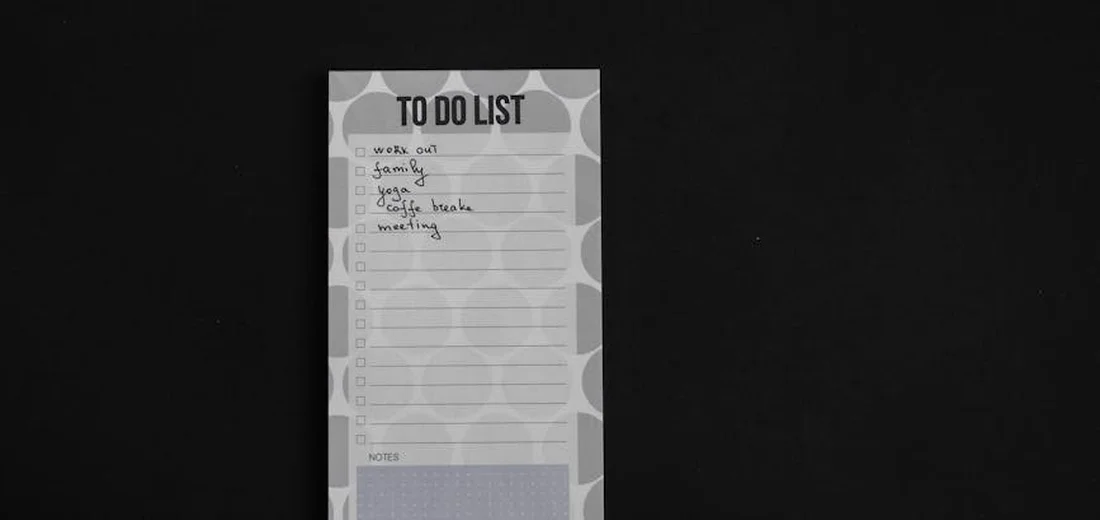 TO DO LIST
work out
family
yoga
coffe breake
meeting
NOTES